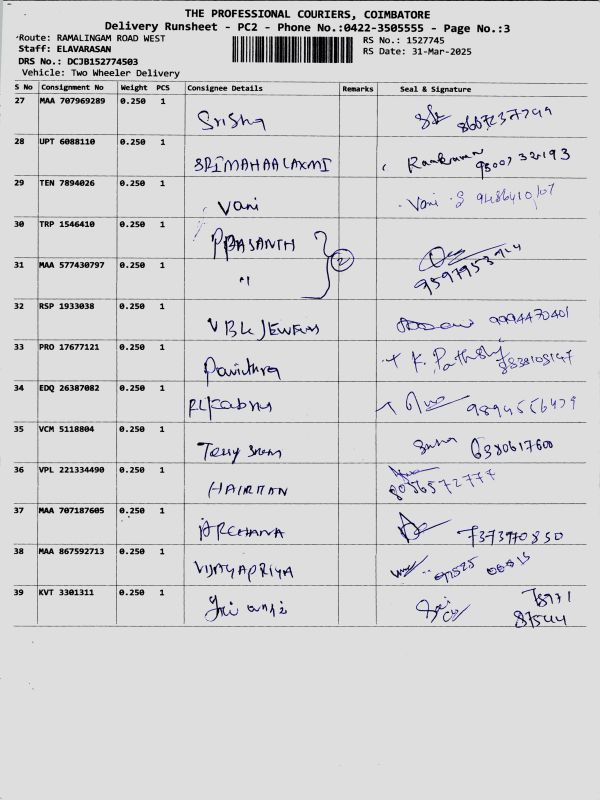 THE PROFESSIONAL COURIERS, COIMBATORE
Delivery Runsheet - PC2 - Phone No.:0422-3505555 - Page No.:3
Route: RAMALINGAM ROAD WEST
RS No.: 1527745
Staff: ELAVARASAN
RS Date: 31-Mar-2025
DRS No.: DCJB152774503
Vehicle: Two Wheeler Delivery
S No Consignment No Weight PCS Consignee Details Remarks Seal & Signature
27 MAA 707969289 0.250 1
28 UPT 6088110 0.250 1 SRIMAHAALAXMI
29 TEN 7894026 0.250 1 Vani Vani . S
30 TRP 1546410 0.250 1 PRASANTH 2
31 MAA 577430797 0.250 1 "
32 RSP 1933038 0.250 1 9994470401
33 PRO 17677121 0.250 1 Pavithra
34 EDQ 26387082 0.250 1
35 VCM 5118804 0.250 1 6380617600
36 VPL 221334490 0.250 1 8056572777
37 MAA 707187605 0.250 1 ARCHANA 7373970850
38 MAA 867592713 0.250 1 VIJAYAPRIYA
39 KVT 3301311 0.250 1 87544